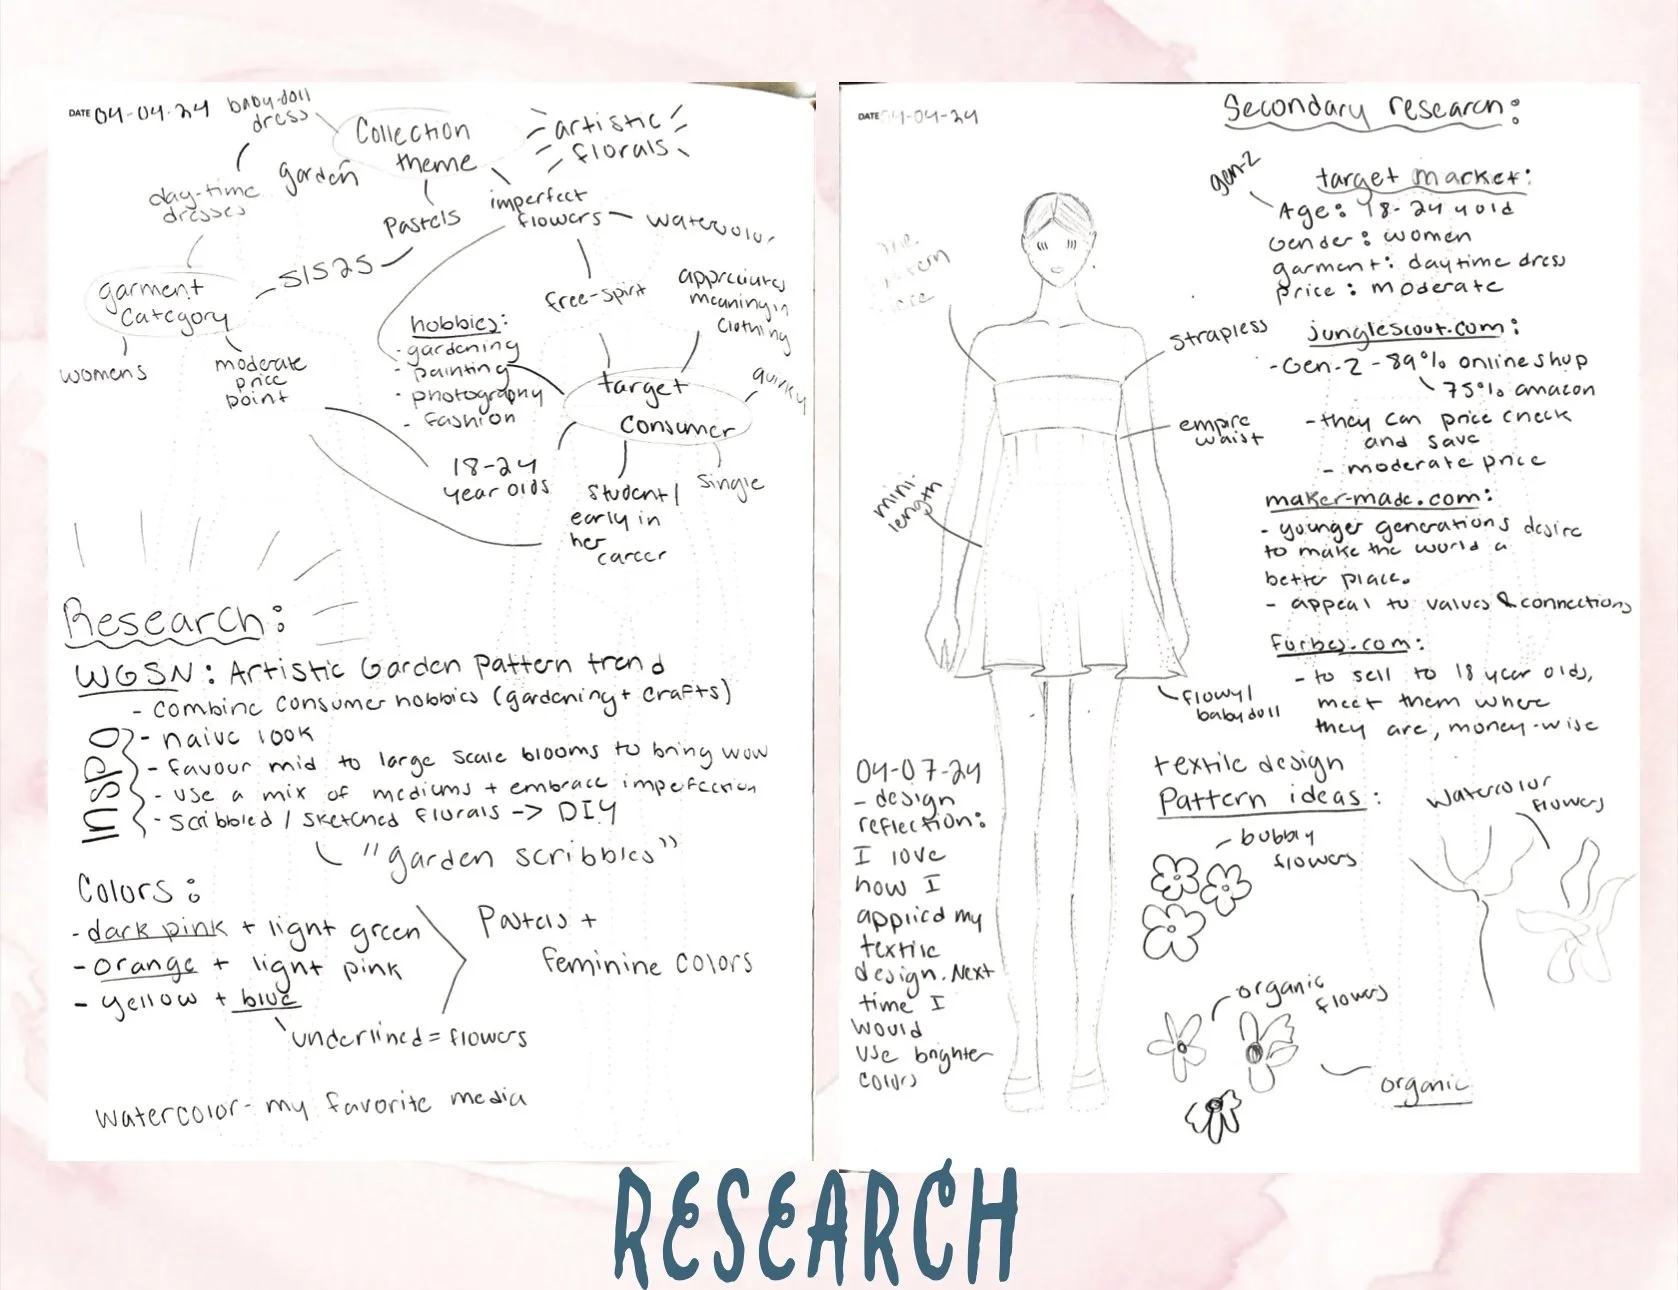 DATE 04-04-24
baby-doll
dress
Collection
theme
artistic
florals
garden
day-time
dresses
Pastels
imperfect
flowers
watercolor
S/S25
garment
Category
womens
moderate
price
point
free-spirit
appreciates
meaning in
clothing
hobbies:
- gardening
- painting
- photography
- fashion
target
consumer
quirky
18-24
year olds
student/
early in
her
career
single
Research:
WGSN: Artistic Garden Pattern trend
- combine consumer hobbies (gardening + crafts)
inspo
- naive look
- favour mid to large scale blooms to bring wow
- use a mix of mediums + embrace imperfection
- scribbled / sketched florals -> DIY
"garden scribbles"
Colors:
- dark pink + light green
- orange + light pink
- yellow + blue
Pastels +
feminine colors
underlined = flowers
watercolor - my favorite media
DATE 04-04-24
Secondary research:
gen-z
target market:
Age: 18-24 y old
Gender: women
garment: daytime dress
price: moderate
strapless
empire
waist
mini-
length
flowy/
babydoll
junglescout.com:
- Gen-Z - 89% online shop
75% amazon
- they can price check
and save
- moderate price
maker-made.com:
- younger generations desire
to make the world a
better place.
- appeal to values & connections
forbes.com:
- to sell to 18 year olds,
meet them where
they are, money-wise
04-07-24
- design
reflection:
I love
how I
applied my
textile
design. Next
time I
would
use brighter
colors
textile design
Pattern ideas:
bubbly
flowers
watercolor
flowers
organic
flowers
organic
RESEARCH